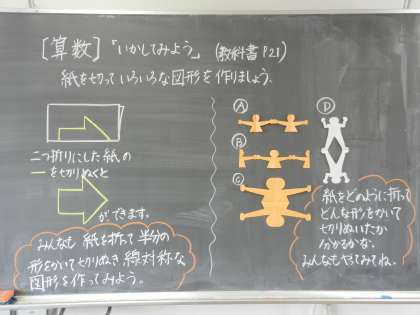 [算数]「いかしてみよう。」(教科書P21)
紙を切っていろいろな図形を作りましょう。
二つ折りにした紙の
ーを切りぬくと
ができます。
みんなも 紙を折って 半分の
形をかいて切りぬき 線対称な
図形を作ってみよう。
A
B
C
D
紙をどのように折って
どんな形をかいて
切りぬいたか
分かるかな。
みんなもやってみてね。